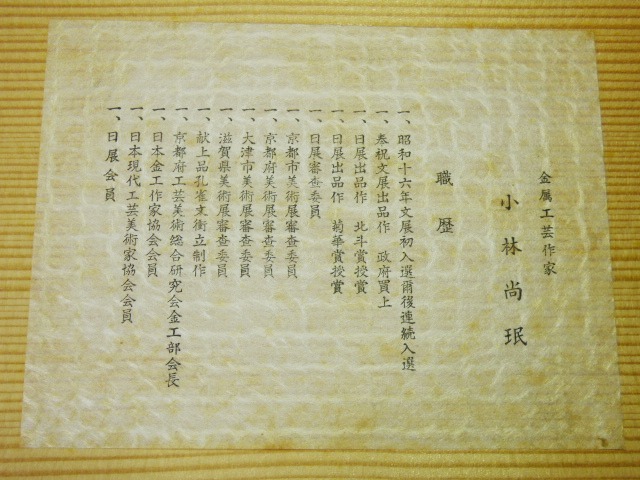 金属工芸作家
小林尚珉
職歴
一、昭和十六年文展初入選爾後連続入選
一、奉祝文展出品作 政府買上
一、日展出品作 北斗賞授賞
一、日展出品作 菊華賞授賞
一、日展審査委員
一、京都市美術展審査委員
一、京都府美術展審査委員
一、大津市美術展審査委員
一、滋賀県美術展審査委員
一、献上品孔雀文衝立制作
一、京都府工芸美術総合研究会金工部会長
一、日本金工作家協会会員
一、日本現代工芸美術家協会会員
一、日展会員